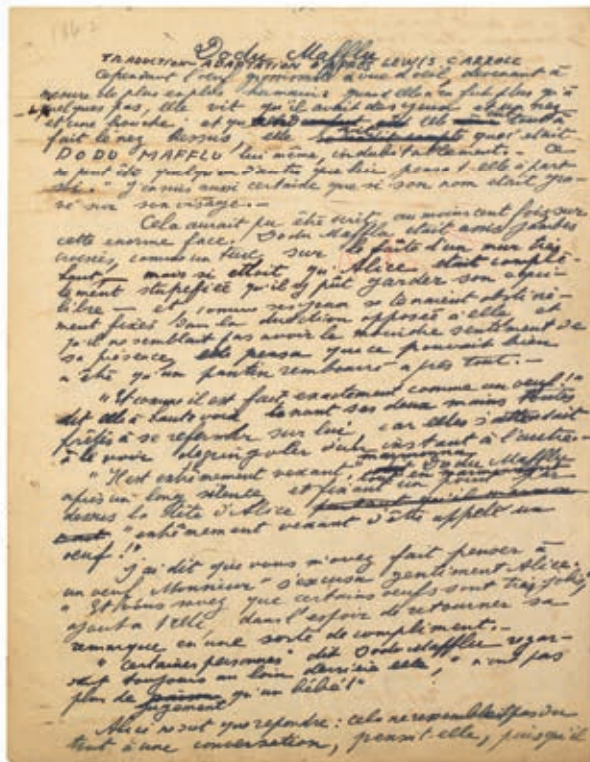 Dodu Mafflu
TRADUCTION ADAPTATION D'APRÈS LEWIS CARROLL
Cependant l'oeuf grossissait à vue d'oeil, devenant à
mesure de plus en plus humain: quand elle ne fut plus qu'à
quelques pas, elle vit qu'il avait des yeux et un nez
et une bouche; et tout à
fait le nez dessus, elle vit que c'était
DODU MAFFLU lui même, indubitablement. - Ce
ne peut être quelqu'un d'autre que lui, pensa t-elle à part
soi. "J'en suis aussi certaine que si son nom était gra-
vé sur son visage. -
Cela aurait pu être écrit au moins cent fois sur
cette énorme face. Dodu Mafflu était assis jambes
croisées, comme un turc, sur le faîte d'un mur très
haut, - mais si étroit qu'Alice était complè-
tement stupéfiée qu'il y pût garder son équi-
libre - et comme ses yeux se tenaient obstiné-
ment fixés dans la direction opposée à elle, et
qu'il ne semblait pas avoir le moindre sentiment de
sa présence, elle pensa que ce pouvait bien
n'être qu'un pantin rembourré après tout. -
"Et comme il est fait exactement comme un oeuf!"
dit elle à haute voix, tenant ses deux mains toutes
prêtes à se refermer sur lui car elle s'attendait
à le voir dégringoler d'un instant à l'autre.
"Il est extrêmement vexant" marmonna Dodu Mafflu
après un long silence, et fixant un point par
dessus la tête d'Alice
"extrêmement vexant d'être appelé un
oeuf!"
"J'ai dit que vous m'avez fait penser à
un oeuf, Monsieur" s'excusa gentiment Alice.
"Et vous savez que certains oeufs sont très jolis,
ajouta t'elle, dans l'espoir de retourner sa
remarque en une sorte de compliment. -
"Certaines personnes" dit Dodu Mafflu regar-
dant toujours au loin derrière elle, "n'ont pas
plus de jugement qu'un bébé!"
Alice ne sut que répondre: cela ne ressemblait pas du
tout à une conversation, pensait elle, puisqu'il